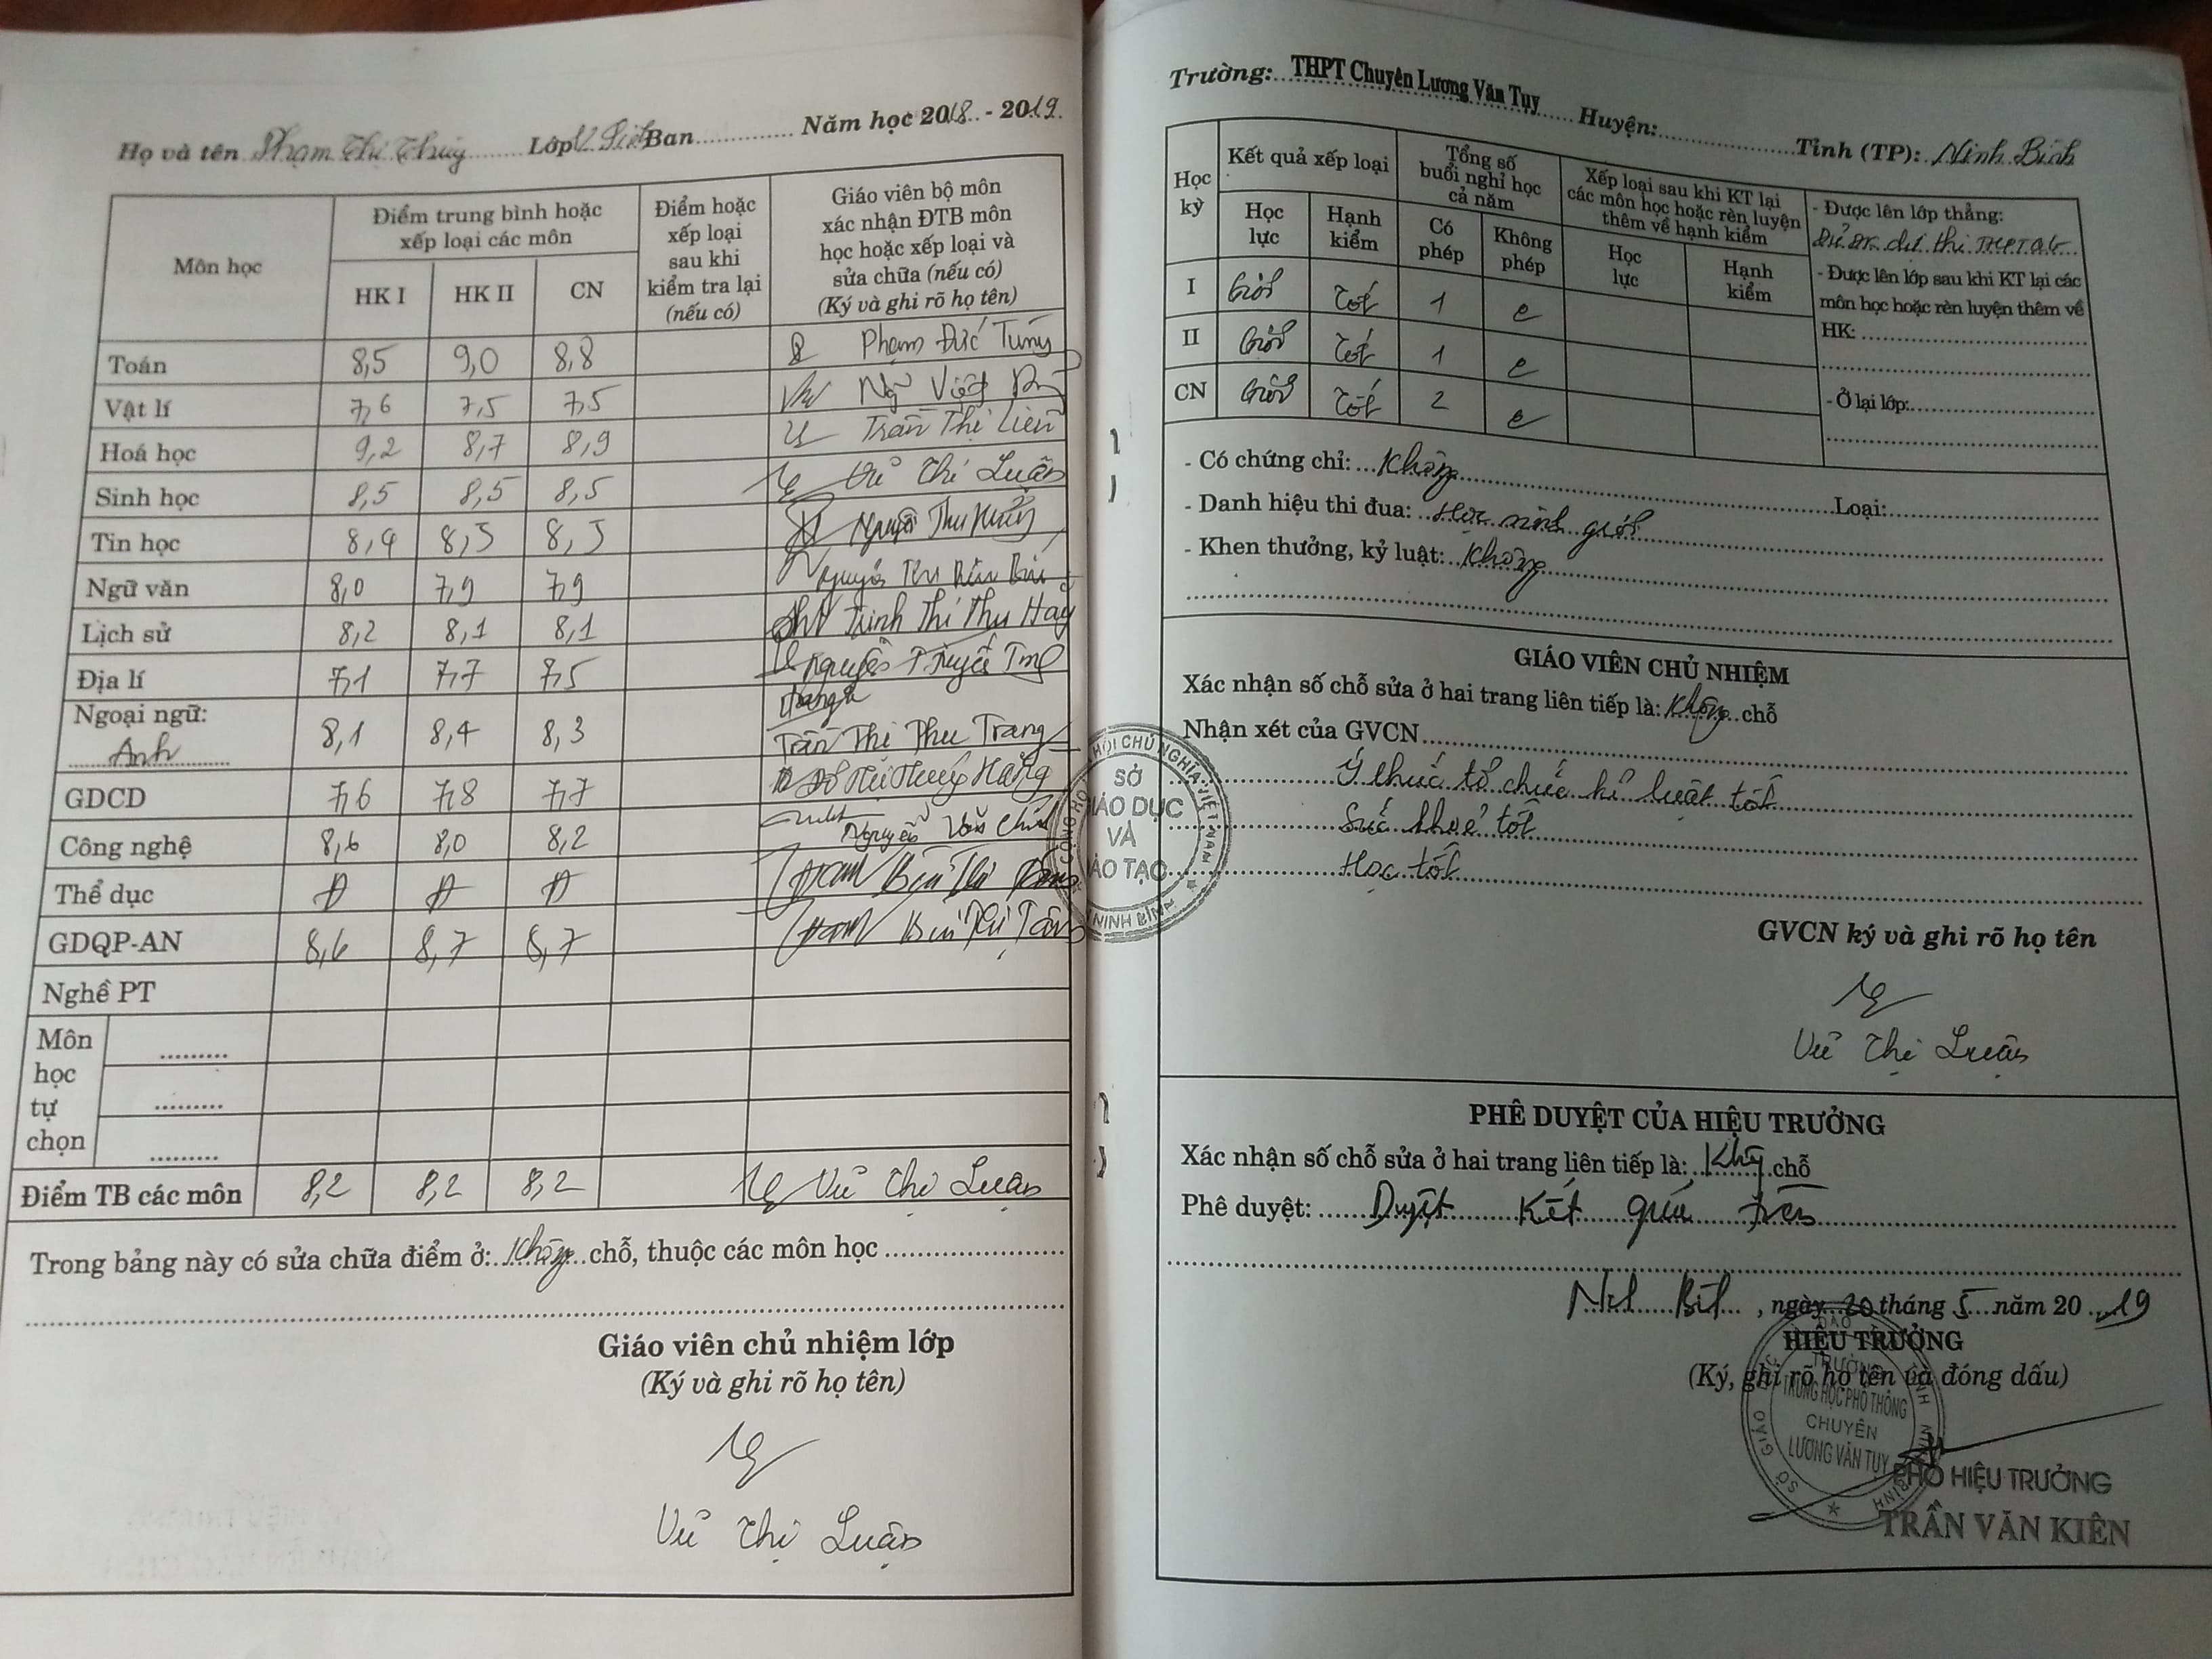 Họ và tên Phạm Thị Thủy Lớp 12 Sinh Ban Năm học 2018 - 2019
Môn học
Điểm trung bình hoặc xếp loại các môn
HK I HK II CN
Điểm hoặc xếp loại sau khi kiểm tra lại (nếu có)
Giáo viên bộ môn xác nhận ĐTB môn học hoặc xếp loại và sửa chữa (nếu có) (Ký và ghi rõ họ tên)
Toán 8,5 9,0 8,8 Phạm Đức Tùng
Vật lí 7,6 7,5 7,5
Hoá học 9,2 8,7 8,9 Trần Thị Liên
Sinh học 8,5 8,5 8,5 Vũ Thị Luận
Tin học 8,4 8,5 8,5 Nguyễn Thu
Ngữ văn 8,0 7,9 7,9 Nguyễn
Lịch sử 8,2 8,1 8,1 Trịnh Thị Thu
Địa lí 7,1 7,7 7,5 Nguyễn
Ngoại ngữ: Anh 8,1 8,4 8,3 Trần Thị Thu Trang
GDCD 7,6 7,8 7,7 Hằng
Công nghệ 8,6 8,0 8,2 Nguyễn Văn
Thể dục Đ Đ Đ Bùi Thị
GDQP-AN 8,6 8,7 8,7 Bùi Thị
Nghề PT
Môn học tự chọn
Điểm TB các môn 8,2 8,2 8,2 Vũ Thị Luận
Trong bảng này có sửa chữa điểm ở: Không chỗ, thuộc các môn học
Giáo viên chủ nhiệm lớp
(Ký và ghi rõ họ tên)
Vũ Thị Luận
Trường: THPT Chuyên Lương Văn Tụy Huyện: Tỉnh (TP): Ninh Bình
Học kỳ
Kết quả xếp loại
Học lực Hạnh kiểm
Tổng số buổi nghỉ học cả năm
Có phép Không phép
Xếp loại sau khi KT lại các môn học hoặc rèn luyện thêm về hạnh kiểm
Học lực Hạnh kiểm
I Giỏi Tốt 1
II Giỏi Tốt 1
CN Giỏi Tốt 2
- Được lên lớp thẳng:
Đủ đk dự thi THPT QG
- Được lên lớp sau khi KT lại các môn học hoặc rèn luyện thêm về HK:
- Ở lại lớp:
- Có chứng chỉ: Không Loại:
- Danh hiệu thi đua: Học sinh giỏi
- Khen thưởng, kỷ luật: Không
GIÁO VIÊN CHỦ NHIỆM
Xác nhận số chỗ sửa ở hai trang liên tiếp là: Không chỗ
Nhận xét của GVCN
Ý thức tổ chức kỉ luật tốt
Sức khoẻ tốt
Học tốt
CỘNG HÒA XÃ HỘI CHỦ NGHĨA VIỆT NAM
SỞ
GIÁO DỤC
VÀ
ĐÀO TẠO
NINH BÌNH
GVCN ký và ghi rõ họ tên
Vũ Thị Luận
PHÊ DUYỆT CỦA HIỆU TRƯỞNG
Xác nhận số chỗ sửa ở hai trang liên tiếp là: Không chỗ
Phê duyệt: Duyệt kết quả trên
Ninh Bình, ngày 20 tháng 5 năm 2019
HIỆU TRƯỞNG
(Ký, ghi rõ họ tên và đóng dấu)
TRƯỜNG
TRUNG HỌC PHỔ THÔNG
CHUYÊN
LƯƠNG VĂN TỤY
PHÓ HIỆU TRƯỞNG
TRẦN VĂN KIÊN